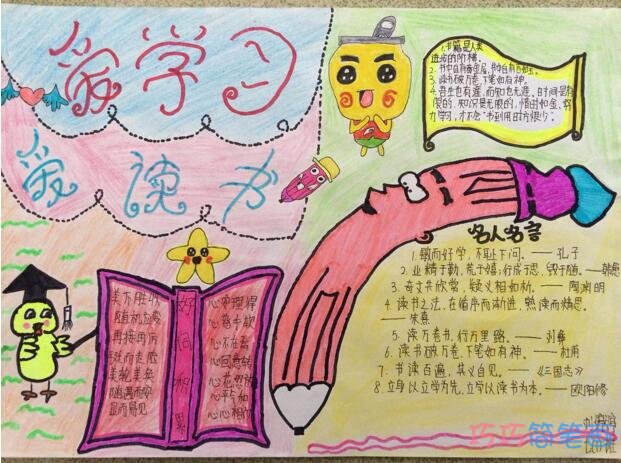 爱学习
爱读书
1.书籍是人类
进步的阶梯。
3.读书破万卷,下笔如有神。
4.吾生也有涯,而知也无涯,时间是有
限的,知识是无限的,惜时如金、努
力学习,才不会"书到用时方恨少"。
名人名言
1.敏而好学,不耻下问。——孔子
2.业精于勤,荒于嬉,行成于思,毁于随。——韩愈
3.奇文共欣赏,疑义相如析。——陶渊明
4.读书之法,在循序而渐进,熟读而精思。
——朱熹
5.读万卷书,行万里路。——刘彝
6.读书破万卷,下笔如有神。——杜甫
7.书读百遍,其义自见。——《三国志》
8.立身以立学为先,立学以读书为本。——欧阳修
美不胜收
随机应变
再接再厉
美轮美奂
随遇而安
显而易见
好词积累
心安理得
心慈手软
心不在焉
心回意转
心花怒放
心平气和
心心相印
巧巧简笔画